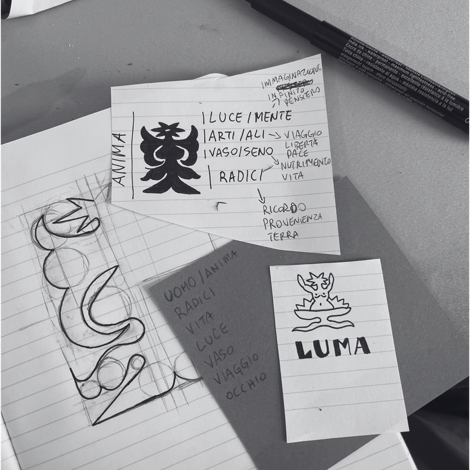 IMMAGINAZIONE
INFINITO
PENSIERO
LUCE/MENTE
ARTI/ALI
VIAGGIO
LIBERTÀ
PACE
VASO/SENO
NUTRIMENTO
VITA
RADICI
RICORDO
PROVENIENZA
TERRA
ANIMA
UOMO/ANIMA
RADICI
VITA
LUCE
VASO
VIAGGIO
OCCHIO
LUMA